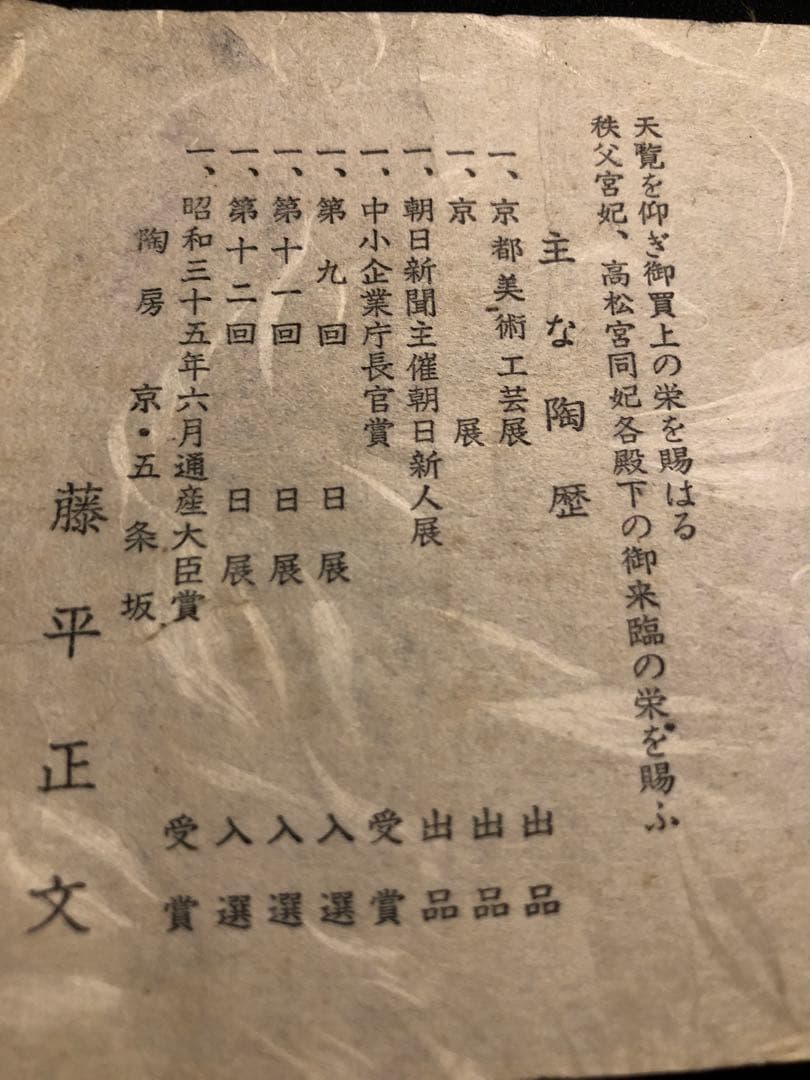 天覧を仰ぎ御買上の栄を賜はる
秩父宮妃、高松宮同妃各殿下の御来臨の栄を賜ふ
主な陶歴
一、京都美術工芸展 出品
一、京展 出品
一、朝日新聞主催朝日新人展 出品
一、中小企業庁長官賞 受賞
一、第九回日展 入選
一、第十一回日展 入選
一、第十二回日展 入選
一、昭和三十五年六月通産大臣賞 受賞
陶房 京・五条坂
藤平正文